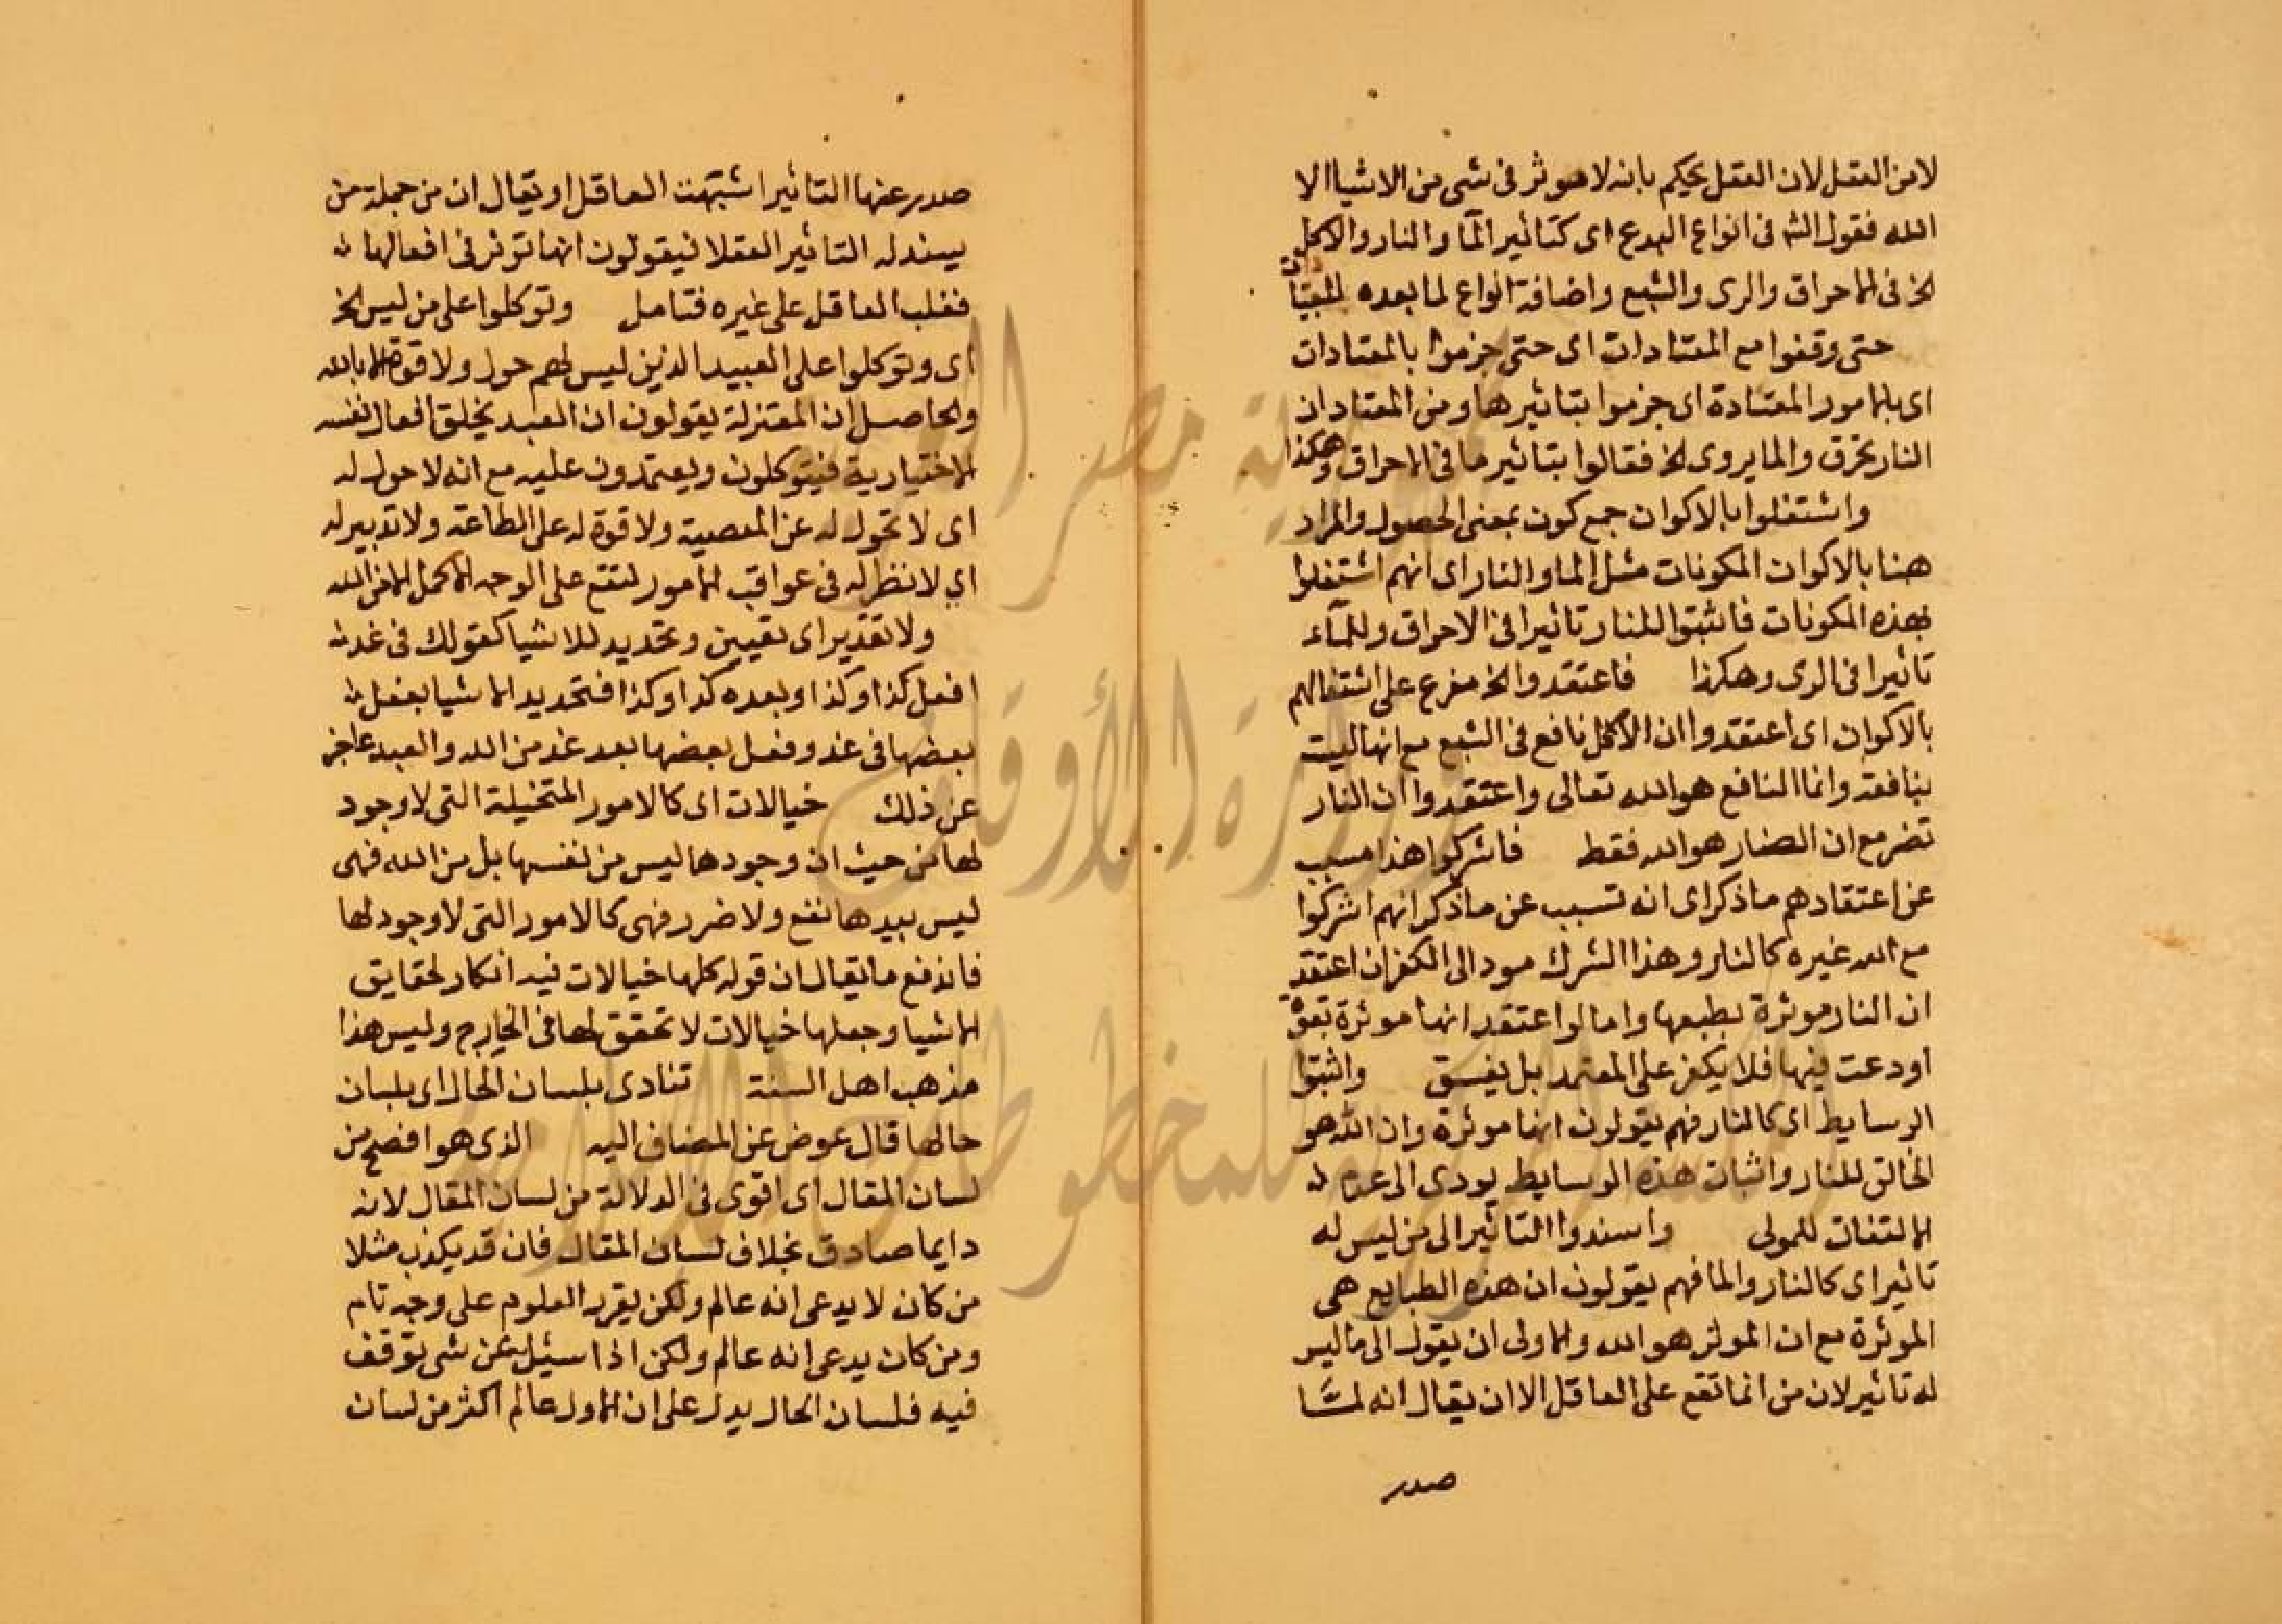 لا من العقل لان العقل يحكم بانه لا موثر فى شى من الاشيا الا
الله فقول الش فى انواع البدع اى كتاثير المآ والنار والاكل
الخ فى الاحراق والرى والشبع واضافة انواع لما بعده للبيان
حتى وقفوا مع المعتادات اى حتى جزموا بالمعتادات
اى بالامور المعتادة اى جزموا بتاثيرها ومن المعتاد ان
النار تحرق والما يروى الخ فقالوا بتاثير ما فى الاحراق وهكذا
واشتغلوا بالاكوان جمع كون بمعنى الحصول والمراد
هنا بالاكوان المكونات مثل الما والنار اى انهم اشتغلوا
بهذه المكونات فاثبتوا للنار تاثيرا فى الاحراق وللمآء
تاثيرا فى الرى وهكذا فاعتقدوا الخ مفرع على اشتغالهم
بالاكوان اى اعتقدوا ان الاكل نافع فى الشبع مع انها ليست
بنافعة وانما النافع هو الله تعالى واعتقدوا ان النار
تضر مع ان الضار هو الله فقط فاشركوا هذا مسبب
عن اعتقادهم ما ذكر اى انه تسبب عن ما ذكر انهم اشركوا
مع الله غيره كالنار وهذا الشرك مود الى الكفر ان اعتقد
ان النار موثرة بطبعها واما لو اعتقد انها موثرة بقوة
اودعت فيها فلا يكفر على المعتمد بل يفسق واثبتوا
الوسايط اى كالنار فهم يقولون انها موثرة وان الله هو
الخالق للنار واثبات هذه الوسايط يودى الى عدم
الالتفات للمولى واسندوا التاثير الى من ليس له
تاثير اى كالنار والما فهم يقولون ان هذه الطبايع هى
الموثرة مع ان الموثر هو الله والاولى ان يقول الى ما ليس
له تاثير لان من انما تقع على العاقل الا ان يقال انه لمّا
صدر
صدر عنها التاثير اشبهت العاقل او يقال ان من جملة من
يسند له التاثير العقلا فيقولون انها توثر فى افعالها
فغلب العاقل على غيره فتامل وتوكلوا على من ليس الخ
اى وتوكلوا على العبيد الذين ليس لهم حول ولا قوة الا بالله
والحاصل ان المعتزلة يقولون ان العبد يخلق افعال نفسه
الاختيارية فيتوكلون ويعتمدون عليه مع انه لا حول له
اى لا تحول له عن المعصية ولا قوة له على الطاعة ولا تدبير له
اى لا نظر له فى عواقب الامور لتقع على الوجه الاكمل الا من الله
ولا تقدير اى تعيين وتحديد للاشيا كقولك فى غد
افعل كذا وكذا وبعده كذا وكذا فتحديد الاشيا بفعل
بعضها فى غد وفعل بعضها بعد غد من الله والعبد عاجز
عن ذلك خيالات اى كالامور المتخيلة التى لا وجود
لها من حيث ان وجودها ليس من نفسها بل من الله فهى
ليس بيدها نفع ولا ضرر فهى كالامور التى لا وجود لها
فاندفع ما يقال ان قوله كلها خيالات فيه انكار لحقايق
الاشيا وجعلها خيالات لا تحقق لها فى الخارج وليس هذا
مذهب اهل السنة تنادى بلسان الحال اى بلسان
حالها فال عوض عن المضاف اليه الذى هو افصح من
لسان المقال اى اقوى فى الدلالة من لسان المقال لانه
دايما صادق بخلاف لسان المقال فان قد يكذب مثلا
من كان لا يدعى انه عالم ولكن يقرر العلوم على وجه تام
ومن كان يدعى انه عالم ولكن اذا سئل عن شى توقف
فيه فلسان الحال يدل على ان الاول عالم اكثر من لسان